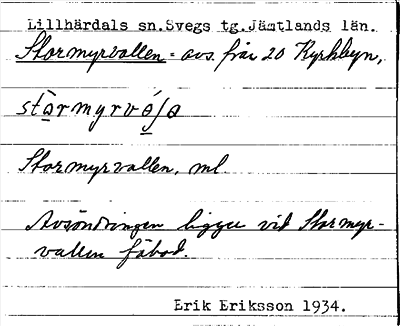 Lillhärdals sn. Svegs tg. Jämtlands län.
Stormyrvallen = avs. från 20 Kyrkbyn,
Stormyrvallen, ml
Avsöndringen ligger vid Stormyr-
vallen fäbod.
Erik Eriksson 1934.